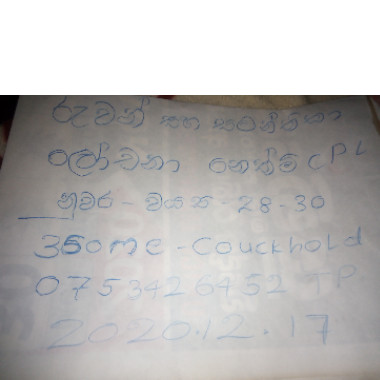 රුවන් සහ සරන්තිකා
ලෝචනා නෙත්මි CPL
නුවර - වයස - 28 - 30
350mc - Couckhold
0753426452 TP
2020.12.17